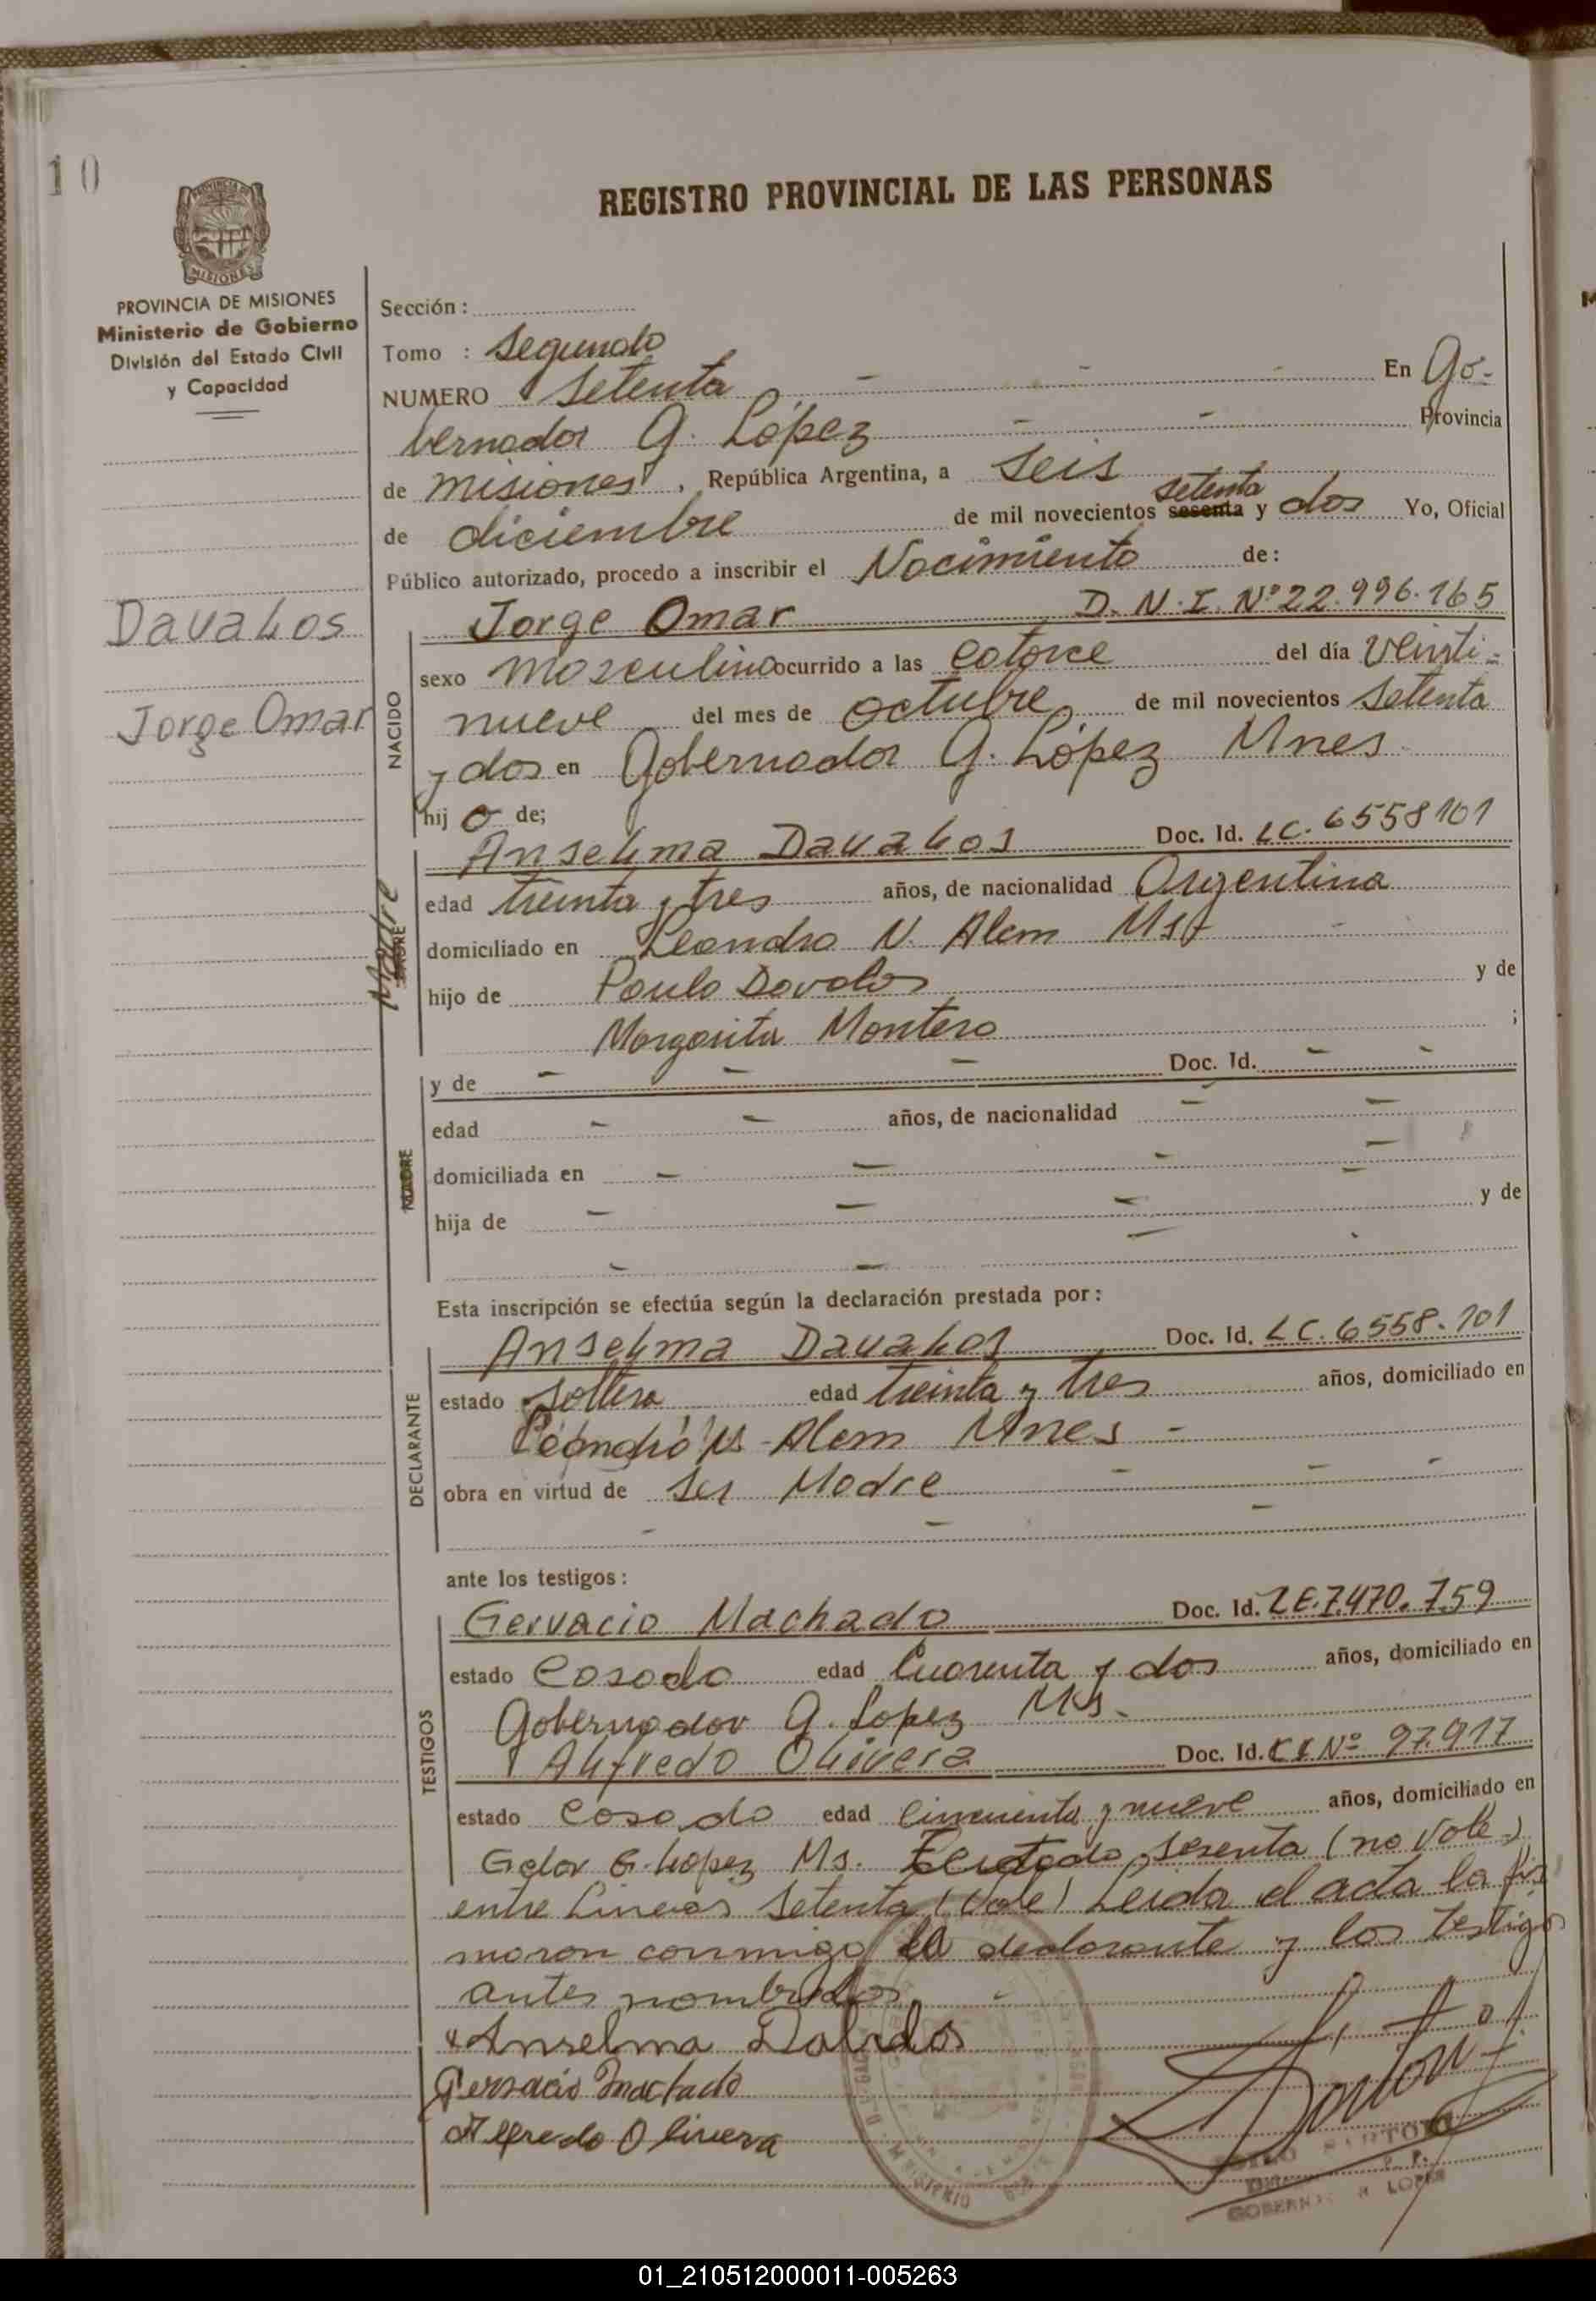 10
REGISTRO PROVINCIAL DE LAS PERSONAS
PROVINCIA DE MISIONES
Ministerio de Gobierno
División del Estado Civil
y Capacidad
MISIONES
Sección:
Tomo : Segundo
NUMERO Setenta - - - En Go-
bernador G. López - - Provincia
de Misiones, República Argentina, a Seis
setenta
de diciembre de mil novecientos sesenta y dos Yo, Oficial
Público autorizado, procedo a inscribir el Nacimiento de:
Davalos
Jorge Omar
NACIDO
Jorge Omar D.N.I. Nº 22.996.165
sexo masculino ocurrido a las catorce del día veinti-
nueve del mes de octubre de mil novecientos setenta
y dos en Gobernador G. López Mnes
hijo de;
Madre
PADRE
Anselma Davalos Doc. Id. LC. 6558101
edad treinta y tres años, de nacionalidad Argentina
domiciliado en Leandro N. Alem Ms
hijo de Paulo Davalos y de
Margarita Montero ;
MADRE
y de - - - Doc. Id. - -
edad - - años, de nacionalidad - -
domiciliada en - - - -
hija de - - - y de
- -
Esta inscripción se efectúa según la declaración prestada por:
DECLARANTE
Anselma Davalos Doc. Id. LC. 6558.101
estado soltera edad treinta y tres años, domiciliado en
Leandro N Alem Mnes -
obra en virtud de ser Madre - - -
- - -
ante los testigos:
TESTIGOS
Gervacio Machado Doc. Id. LE.7.470.759
estado Casado edad Cuarenta y dos años, domiciliado en
Gobernador G. Lopez Ms.
Alfredo Olivera Doc. Id. CI Nº 97.917
estado Casado edad cincuenta y nueve años, domiciliado en
Gdor G. Lopez Ms. Testado sesenta (no vale)
entre lineas setenta (vale) Leida el acta la fir
maron conmigo la declarante y los testigos
antes nombrados -
x Anselma Dabalos
Gervacio Machado
Alfredo Olivera
SARTORI
GOBERN LOPEZ
01_210512000011-005263